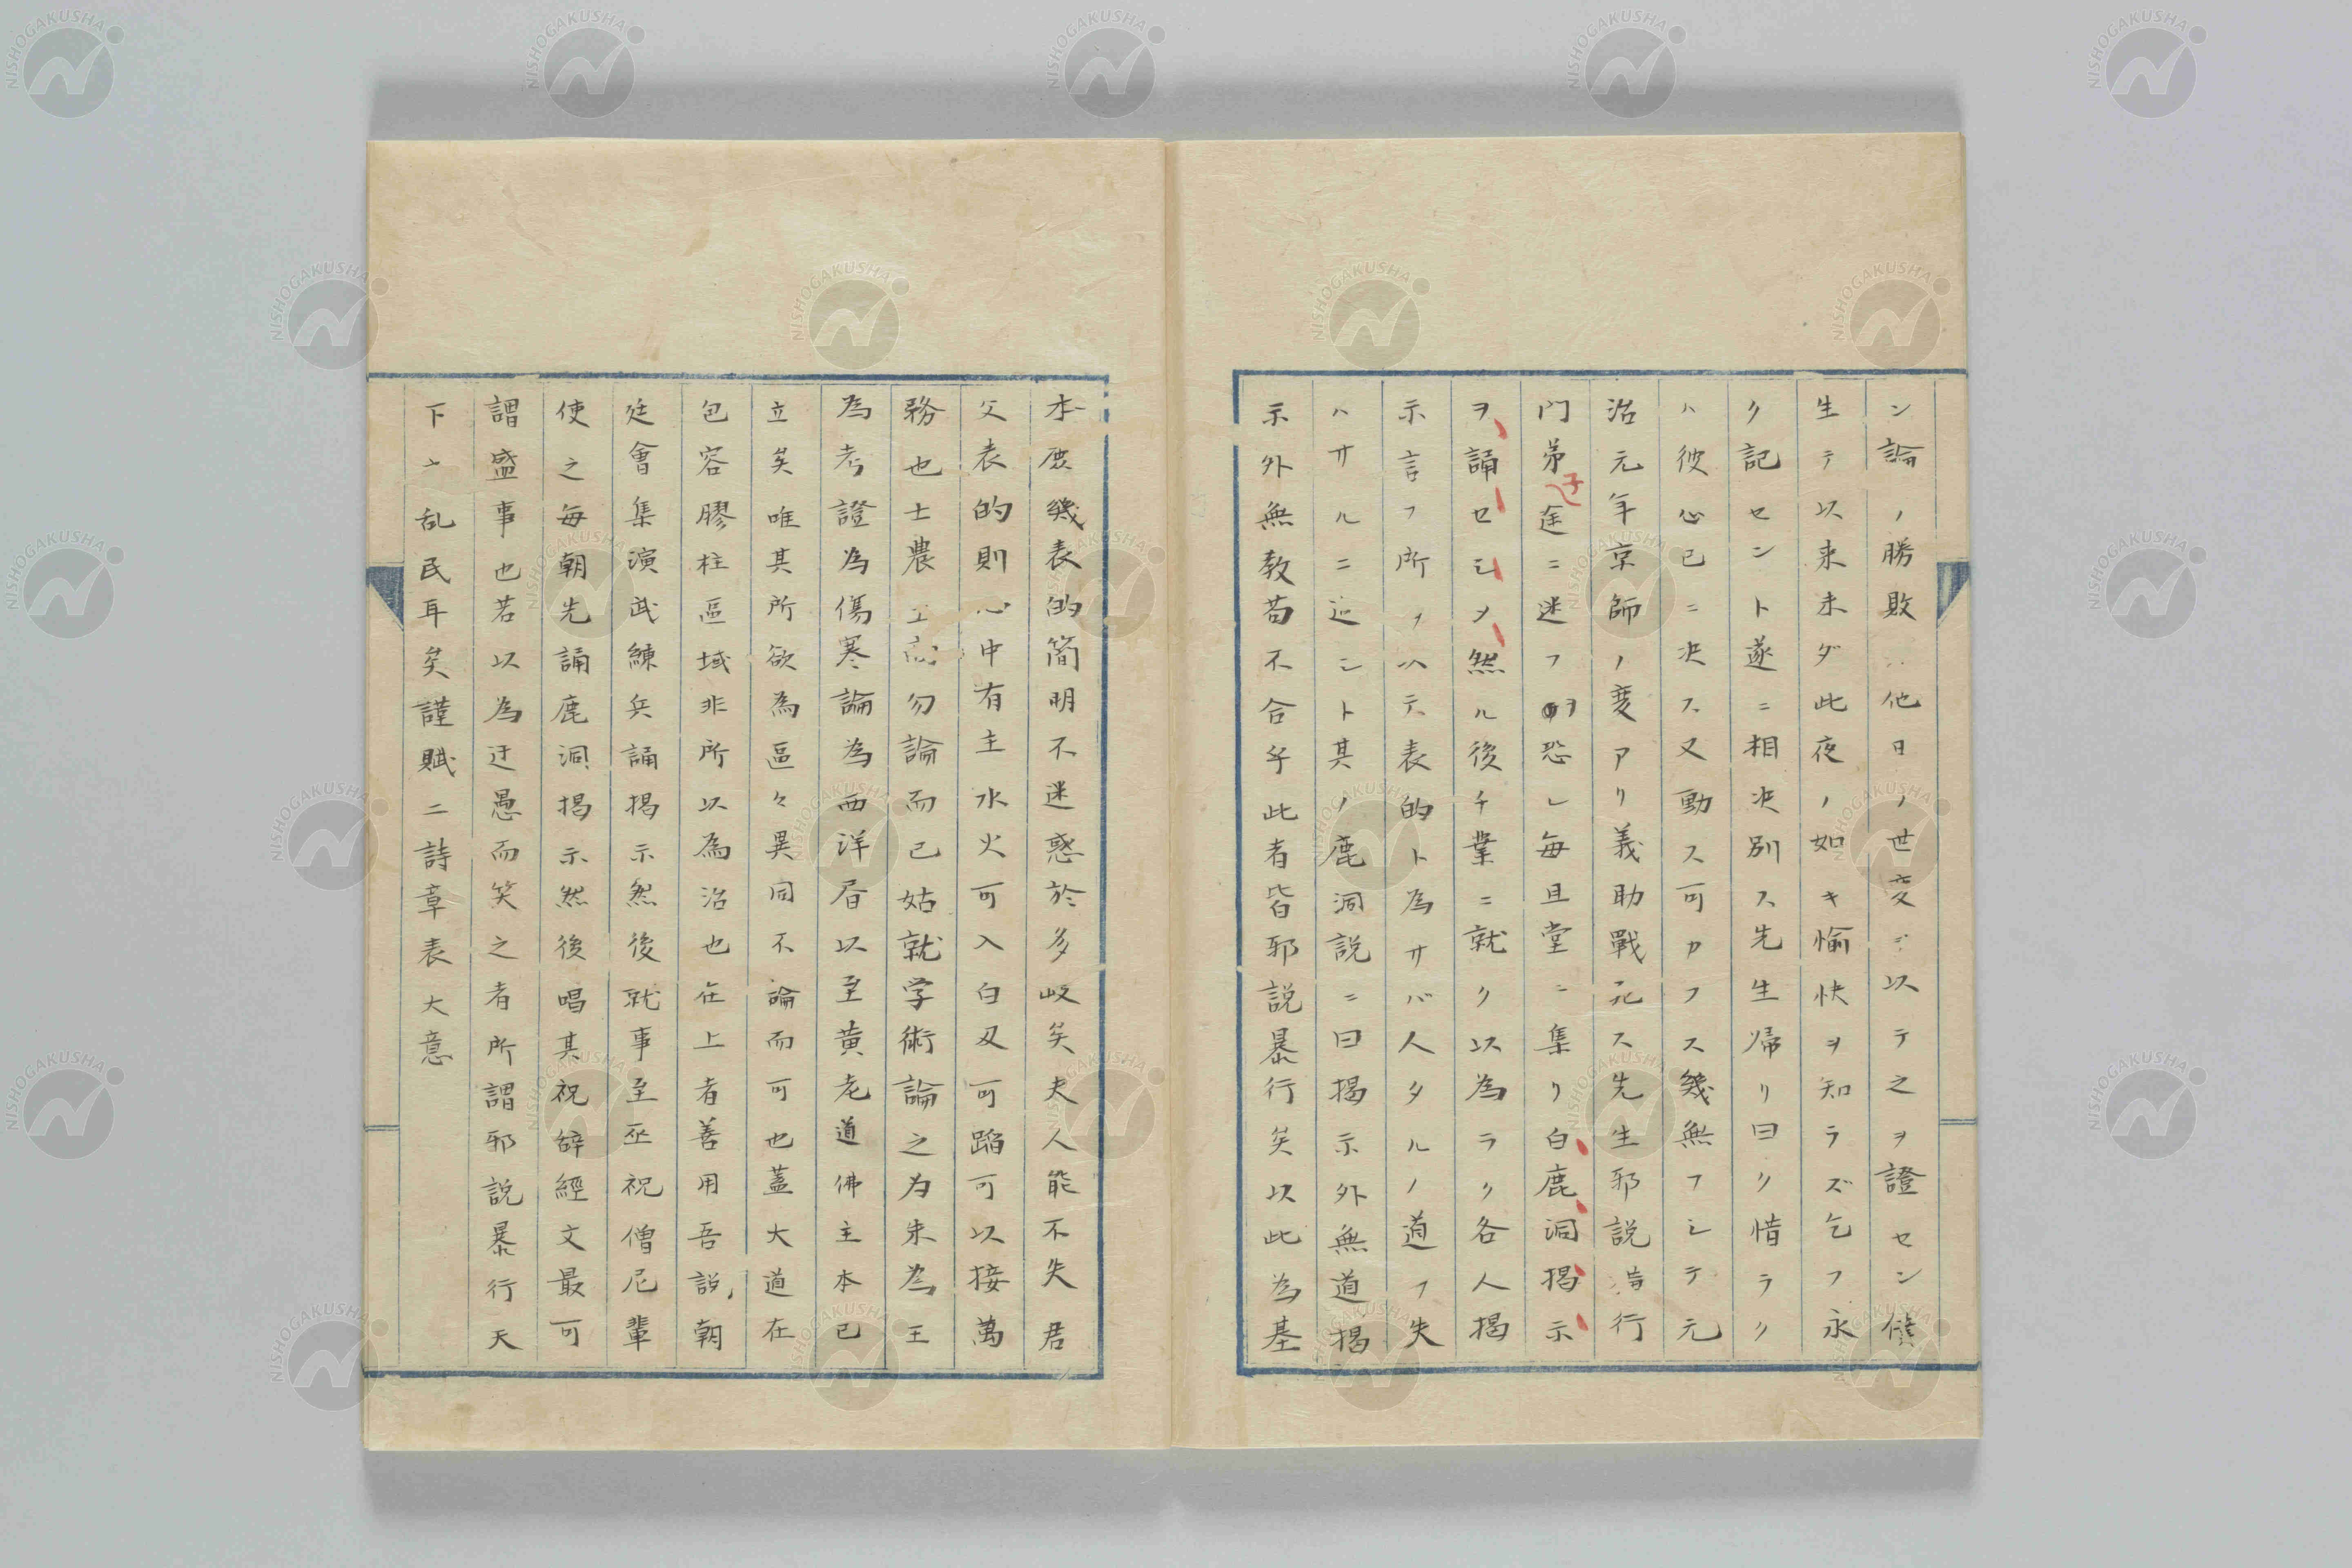 ン論ノ勝敗ハ他日ノ世変ヲ以テ之ヲ證セン僕
生テ以来未ダ此夜ノ如キ愉快ヲ知ラズ乞フ永
ク記センート遂ニ相决別ス先生帰リ曰ク惜ラク
ハ彼心已ニ决ス又動ス可カラス幾無フシテ元
治元年京師ノ変アリ義助戰死ス先生邪説 行
門弟子途ニ迷フヲ恐レ毎旦堂ニ集リ白鹿洞揭示
ヲ誦セシヲ然ル後チ業ニ就ク以為ラク各人揭
示言フ所ヲ以テ表的ト為サバ人タルノ道ヲ失
ハサルニ近シト其ノ鹿洞説ニ曰揭示外無道揭
示外無教苟不合乎此者皆邪説暴行矣以此為基
本庶幾表的簡明不迷惑於多岐矣夫人能不失君
父表的則心中有主水火可入白刄可蹈可以接萬
務也士農工商勿論而已姑就学術論之为朱為王
為考證為傷寒論為西洋唇以至黄老道佛主本已
立矣唯其所欲為區々異同不論而可也蓋大道在
包容膠柱區域非所以為治也在上者善用吾説朝
廷會集演武練兵誦揭示然後就事至巫祝僧尼輩
使之每朝先誦鹿洞揭示然後唱其祝辞經文最可
謂盛事也若以為迂愚而笑之者所謂邪説暴行天
下亠乱民耳矣謹賦二詩章表大意
NISHOGAKUSHA